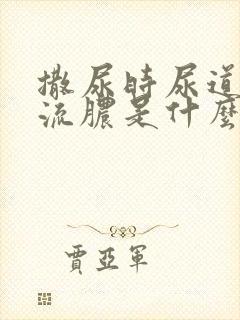 撒尿时尿道
流膿是什麼
賈亞軍